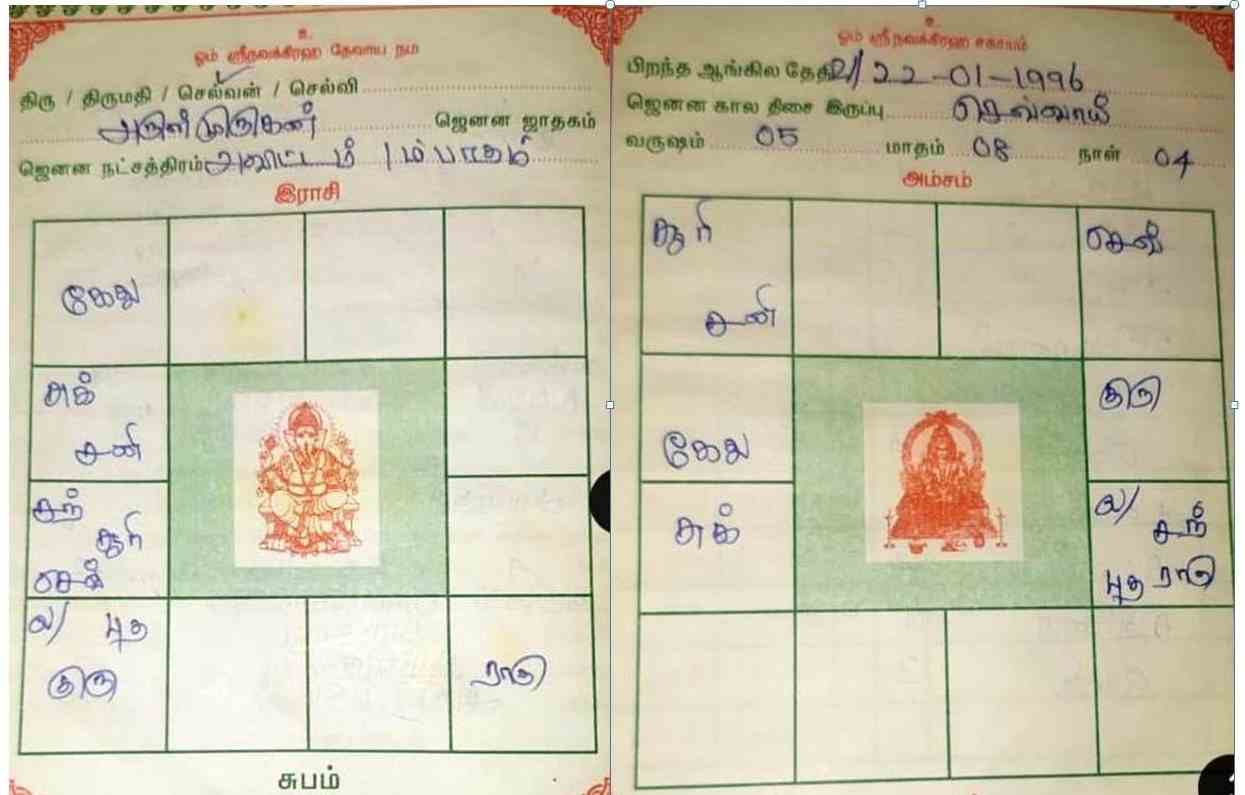 உ
ஓம் ஸ்ரீநவக்கிரஹ தேவாய நம
திரு / திருமதி / செல்வன் / செல்வி
அருள் முருகன் ஜெனன ஜாதகம்
ஜெனன நட்சத்திரம் அவிட்டம் 1ம் பாதம்
இராசி
கேது
சுக்
சனி
சந்
சூரி
செவ்
ல/ புத
குரு
ராகு
சுபம்
உ
ஓம் ஸ்ரீநவக்கிரஹ சகாயம்
பிறந்த ஆங்கில தேதி 22-01-1996
ஜெனன கால திசை இருப்பு செவ்வாய்
வருஷம் 05 மாதம் 08 நாள் 04
அம்சம்
சூரி
சனி
செவ்
குரு
கேது
சுக்
ல/
சந்
புத ராகு